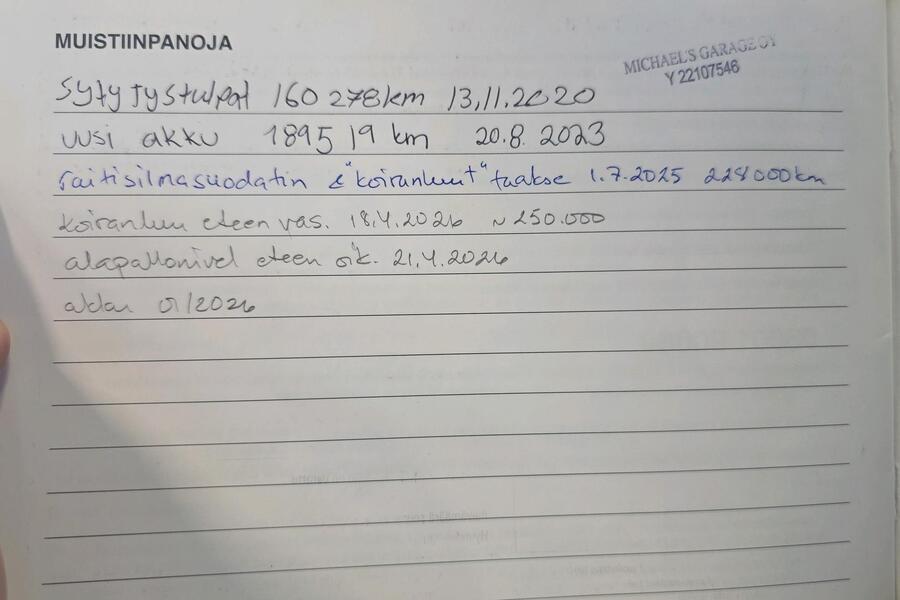 MUISTIINPANOJA
MICHAEL'S GARAGE OY
Y 22107546
Sytytystulpat 160 278km 13,11.2020
uusi akku 189519 km 20.8.2023
raitisilmasuodatin & "koiranluut" taakse 1.7.2025 228000km
koiranluu eteen vas. 18.4.2026 ~250.000
alapallonivel eteen oik. 21.4.2026
01/2026